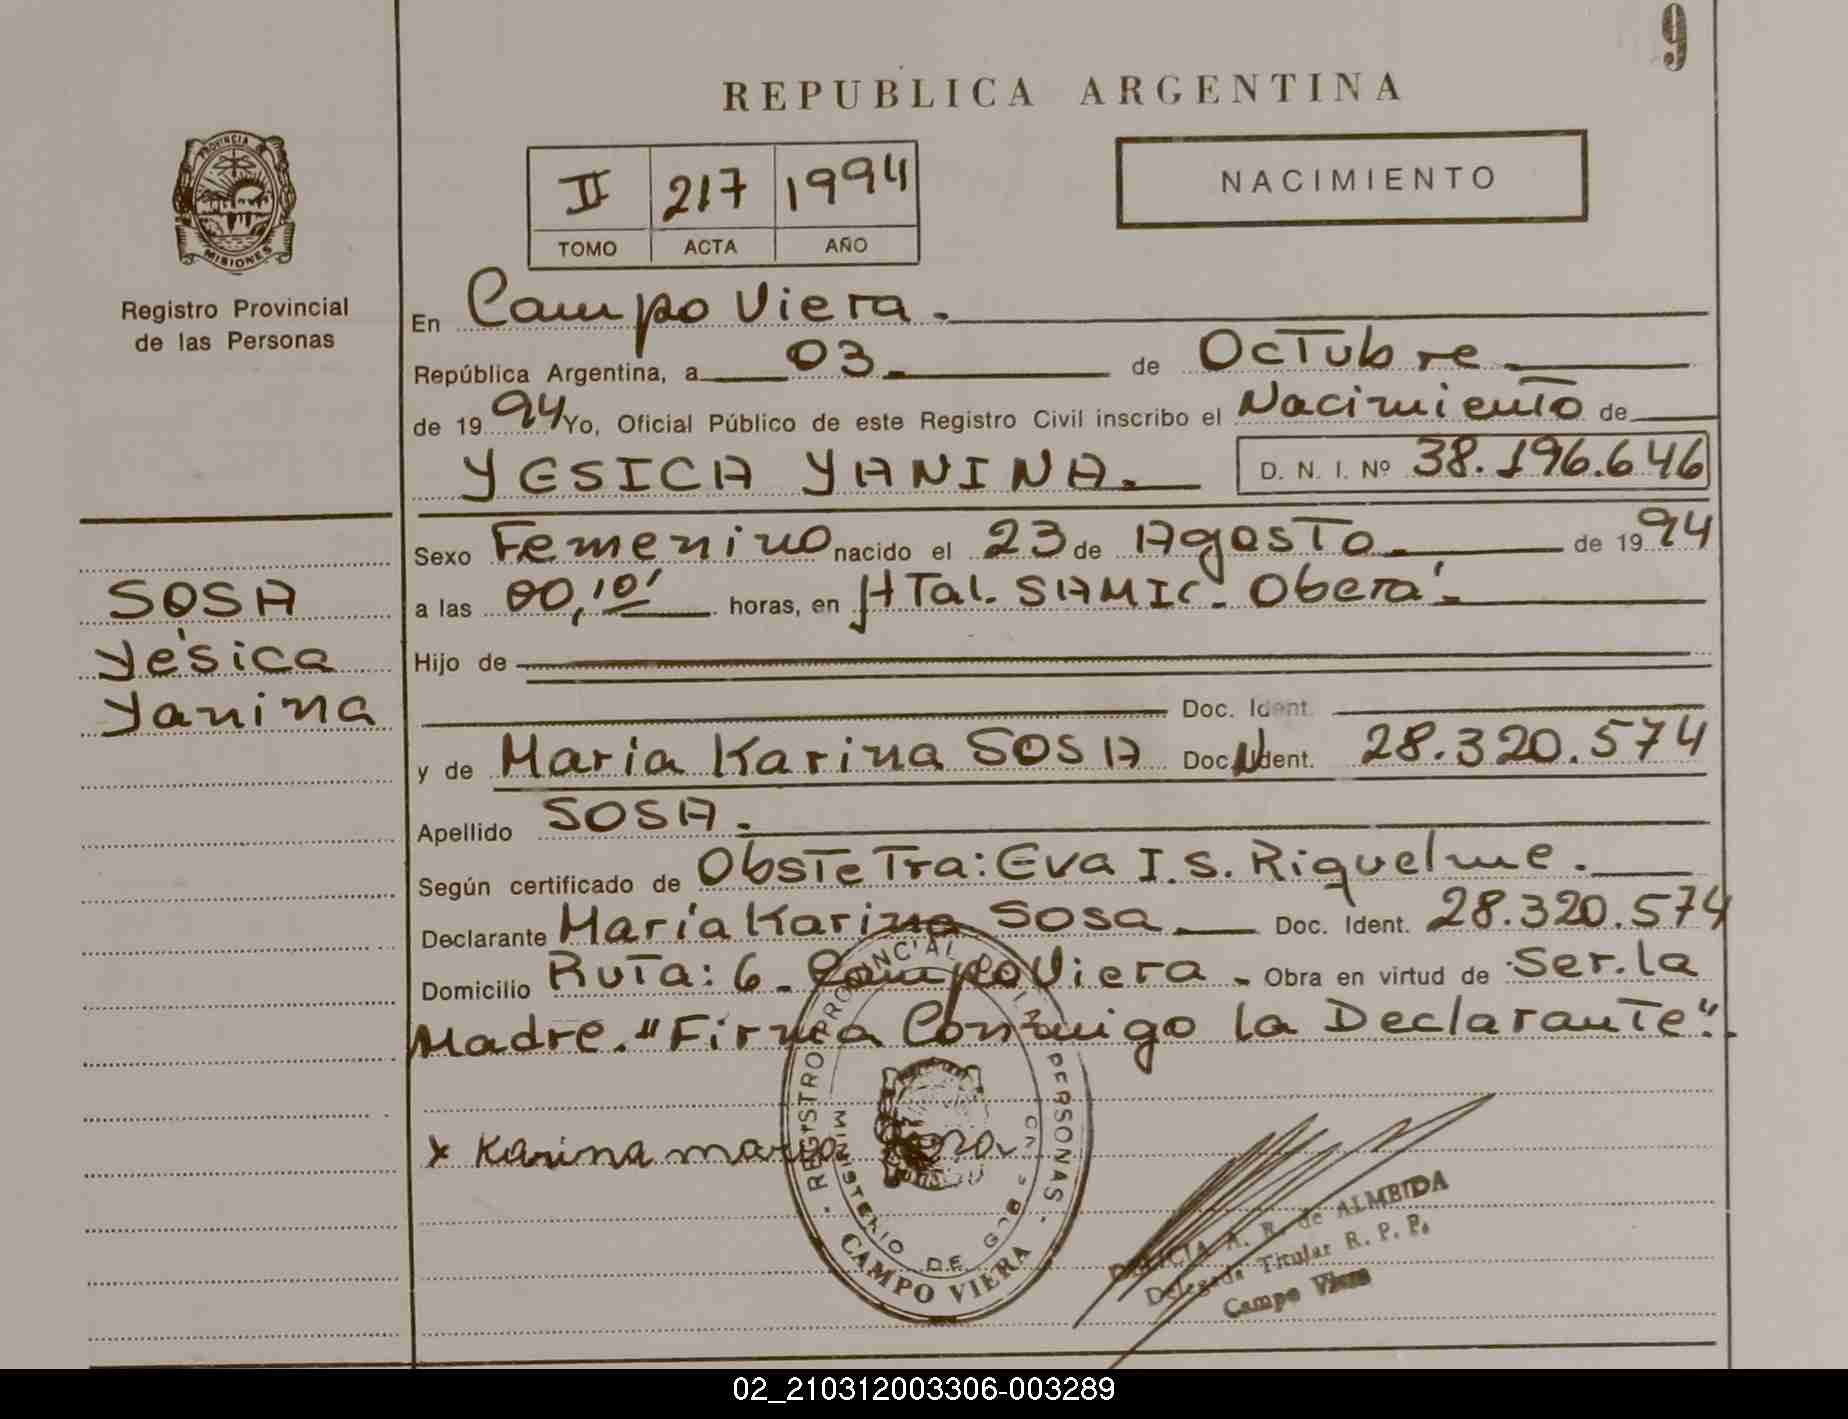 9
REPUBLICA ARGENTINA
PROVINCIA DE
MISIONES
Registro Provincial
de las Personas
II 217 1994
TOMO ACTA AÑO
NACIMIENTO
En Campo Viera.
República Argentina, a 03 de Octubre
de 1994 Yo, Oficial Público de este Registro Civil inscribo el Nacimiento de
YESICA YANINA. D. N. I. Nº 38.196.646
Sexo Femenino nacido el 23 de Agosto de 1994
a las 00,10' horas, en HTal. SAMIC. Oberá.
Hijo de
Doc. Ident.
y de Maria Karina SOSA Doc. Ident. 28.320.574
Apellido SOSA.
Según certificado de ObsTeTra: Eva I. S. Riquelme.
Declarante María Karina Sosa Doc. Ident. 28.320.574
Domicilio RuTa: 6. Campo Viera. Obra en virtud de Ser. la
Madre. "Firma Conmigo la Declarante".
SOSA
Yésica
Yanina
x Karina maria Sosa
REGISTRO PROVINCIAL PERSONAS
MINISTERIO DE
CAMPO VIERA
A. R. de ALMEIDA
Delegada Titular R. P. P.
Campo Viera
02_210312003306-003289